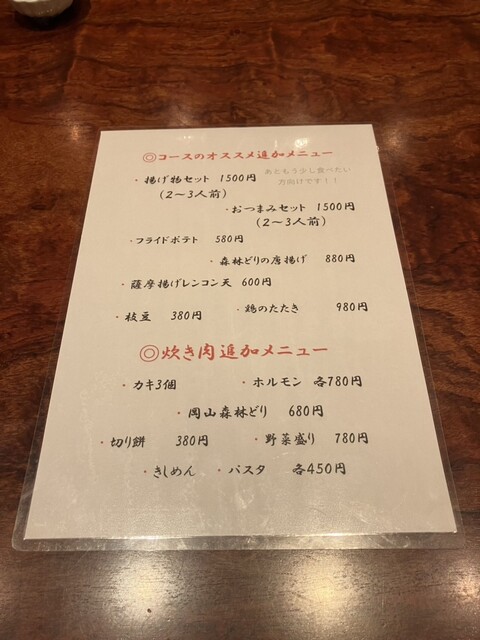 ◎コースのオススメ追加メニュー
・揚げ物セット 1500円 あともう少し食べたい
(2〜3人前) 方向けです!!
・おつまみセット 1500円
(2〜3人前)
・フライドポテト 580円
・森林どりの唐揚げ 880円
・薩摩揚げレンコン天 600円
・枝豆 380円 ・鶏のたたき 980円
◎炊き肉追加メニュー
・カキ3個 ・ホルモン 各780円
・岡山森林どり 680円
・切り餅 380円 ・野菜盛り 780円
・きしめん ・パスタ 各450円